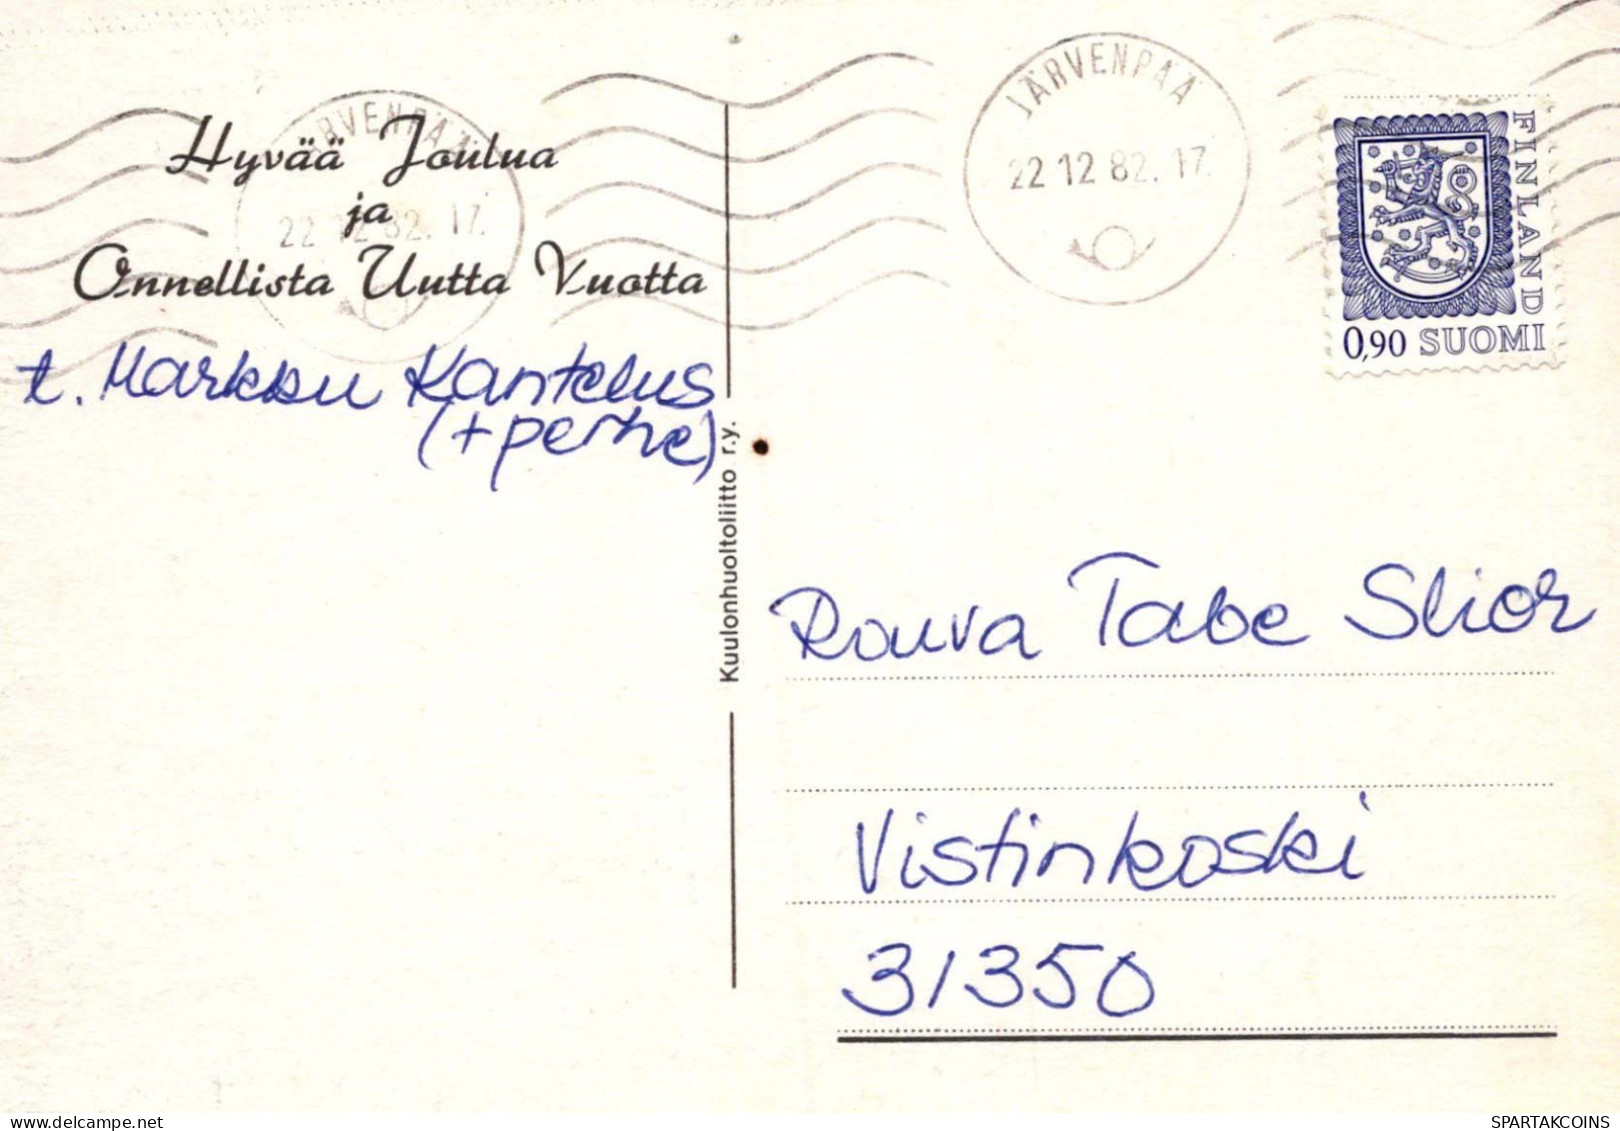 Hyvää Joulua
ja
Onnellista Uutta Vuotta
t. Markku Kantelus
(+perhe)
Kuulonhuoltoliitto r.y.
JÄRVENPÄÄ
22.12.82.17
JÄRVENPÄÄ
22 12 82. 17
FINLAND
0,90 SUOMI
Rouva Tabe Slior
Vistinkoski
31350
SPARTAKCOINS